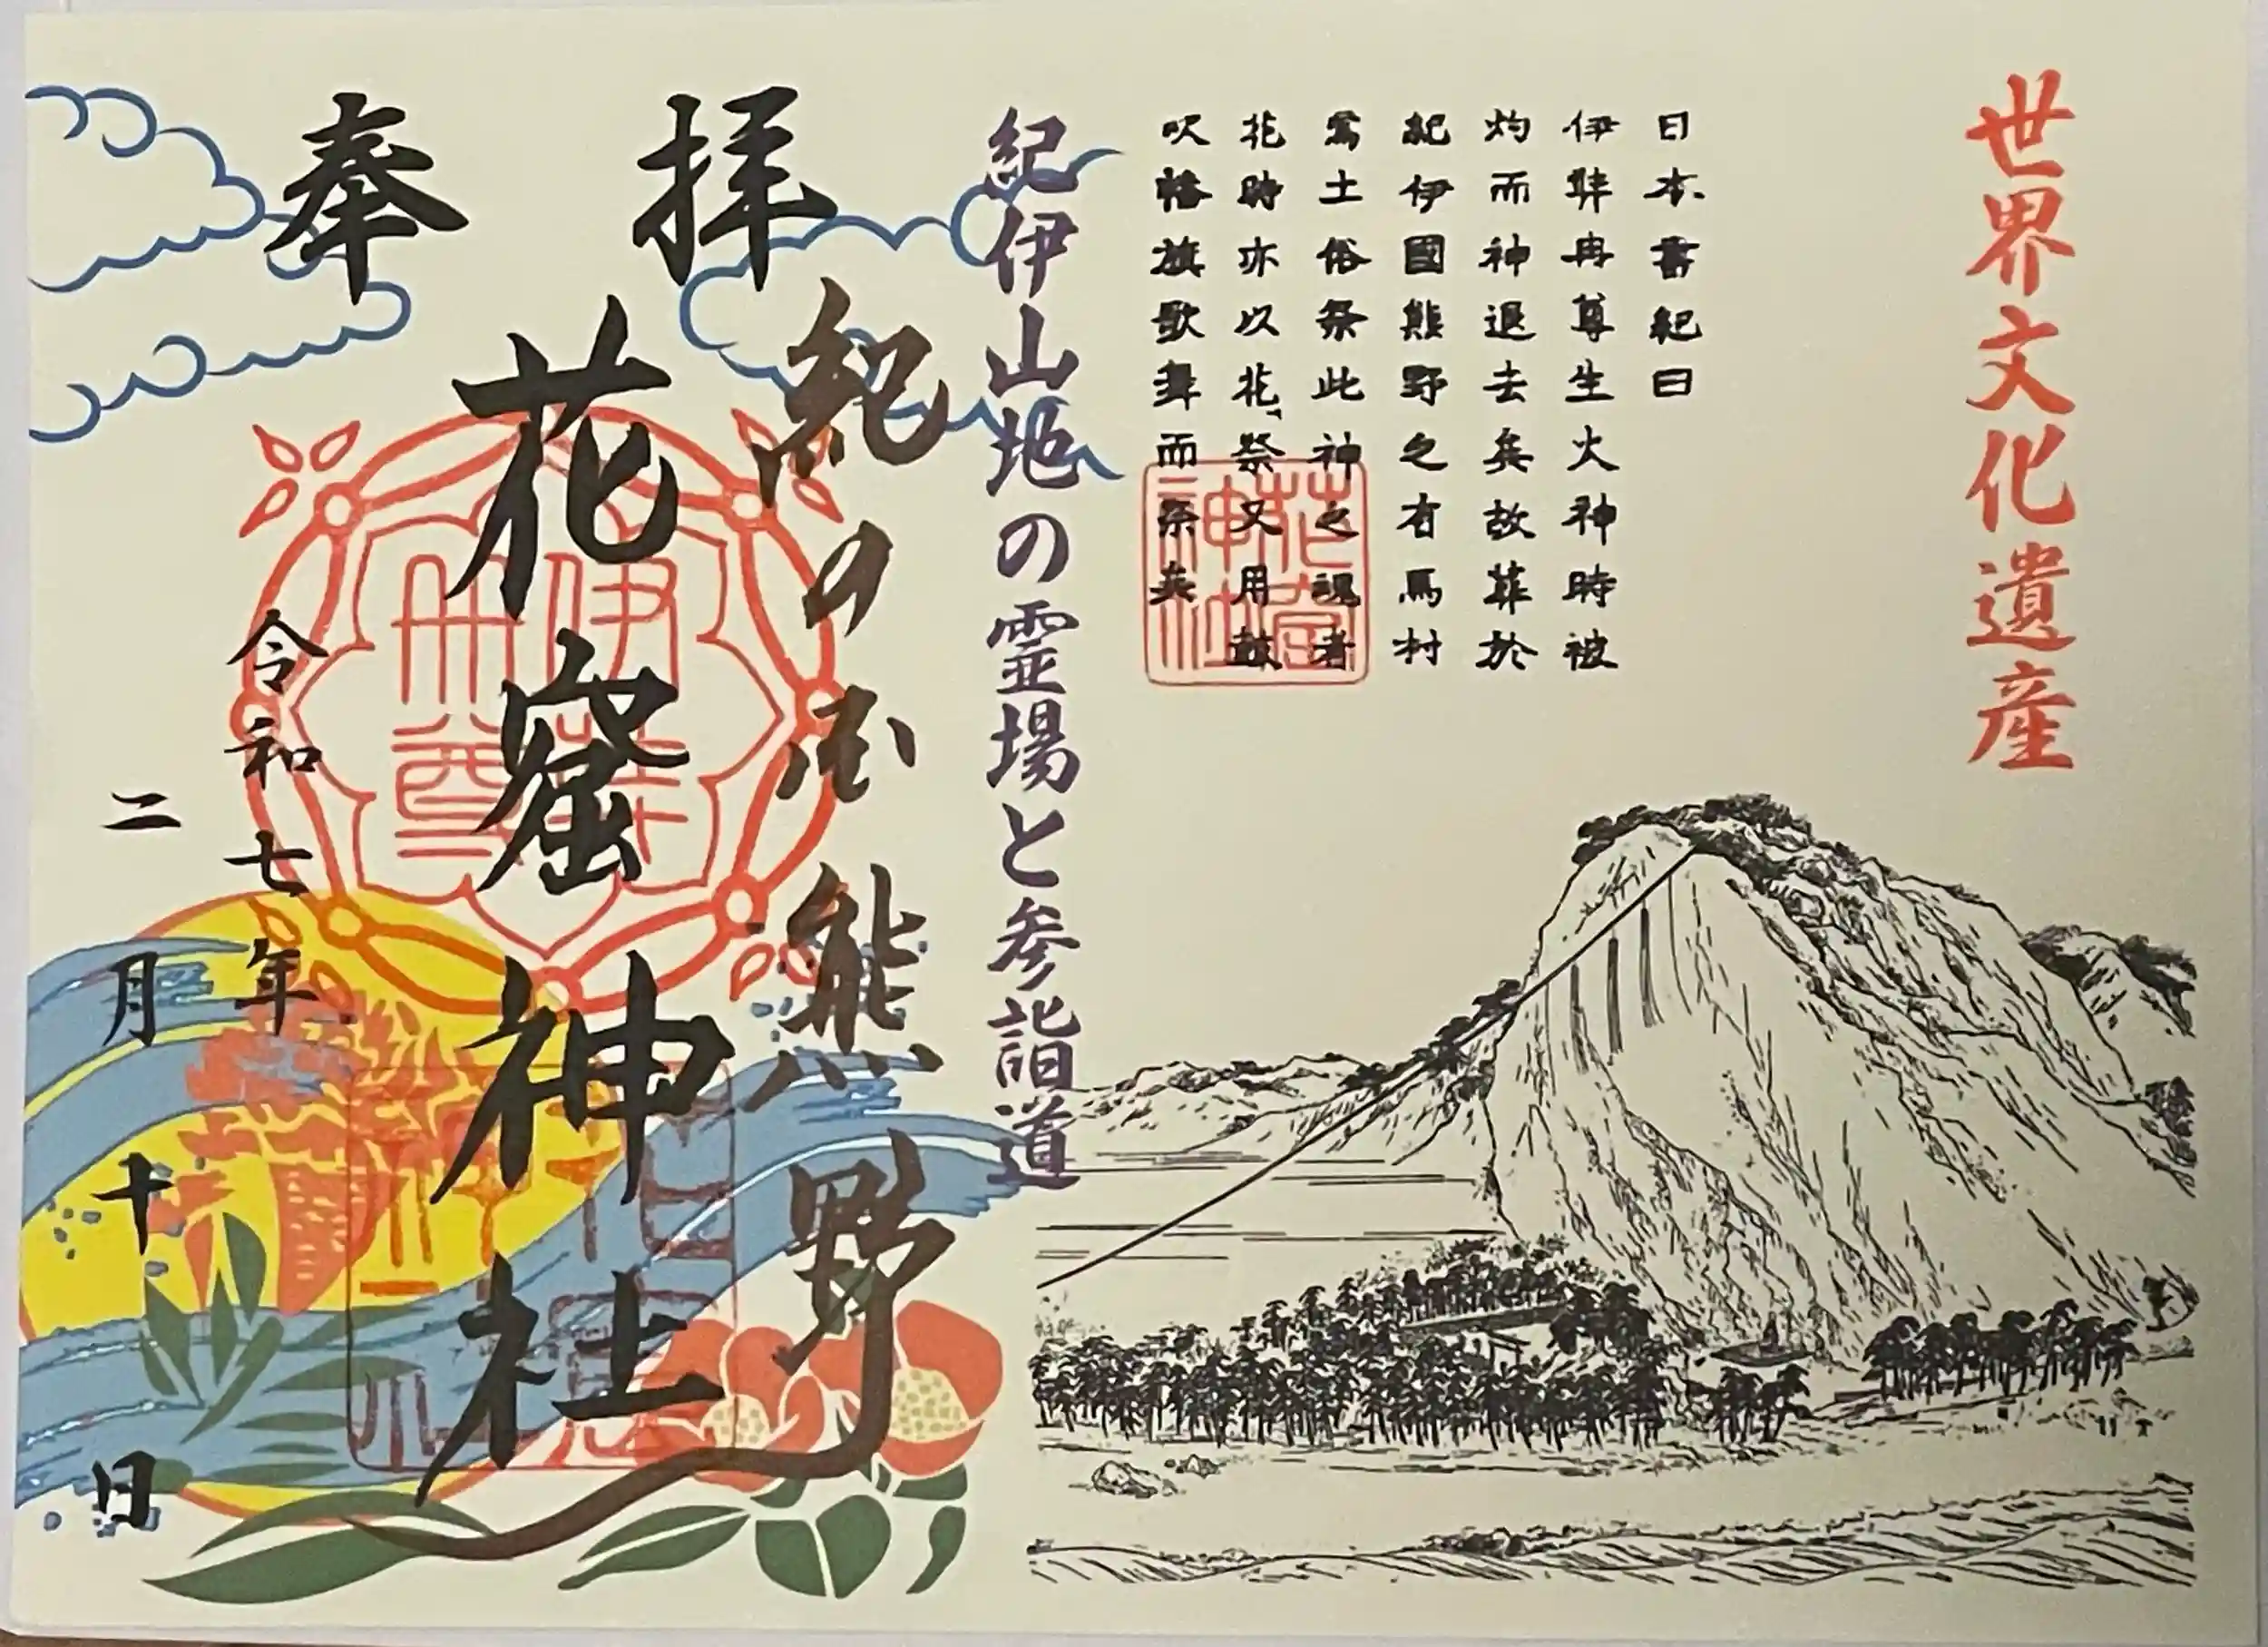 世界文化遺産
日本書紀曰
伊弉冉尊生火神時被
灼而神退去矣故葬於
紀伊國熊野之有馬村
焉土俗祭此神之魂者
花時亦以花祭又用鼓
吹幡旗歌舞而祭矣
花窟神社
紀伊山地の霊場と参詣道
奉拝
紀の国熊野
花窟神社
伊弉冊尊
令和七年
二月十日